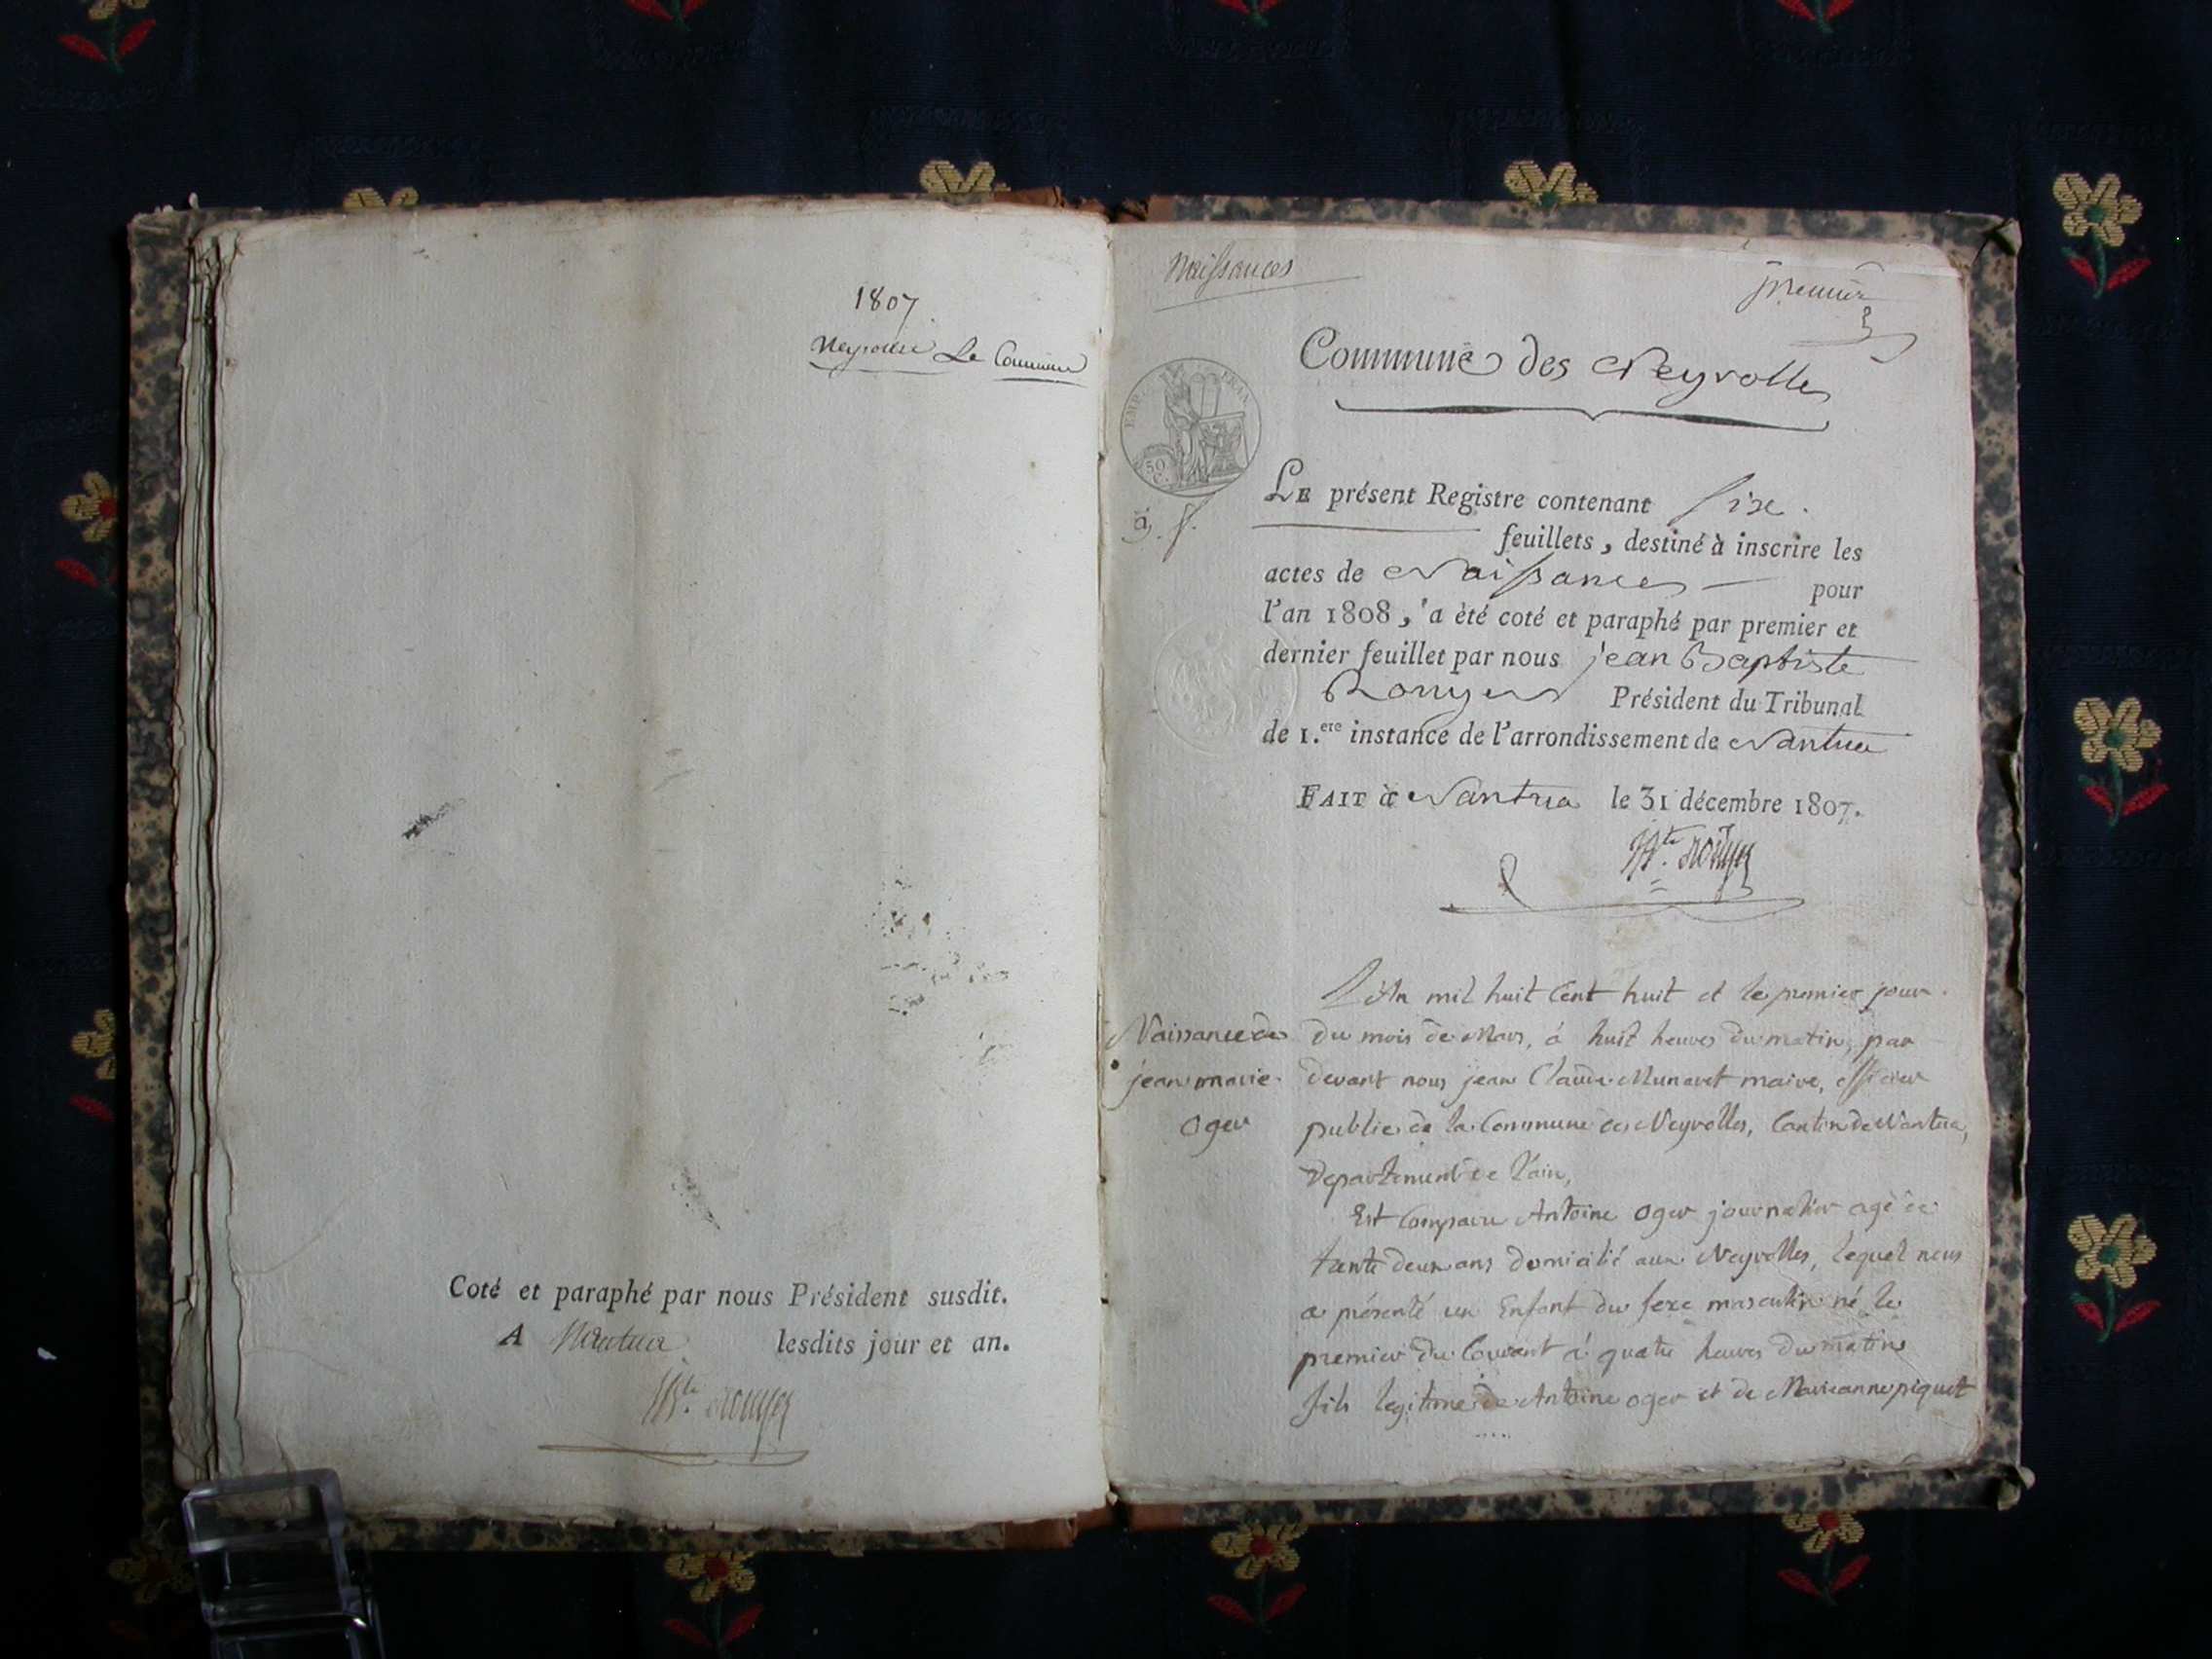 1807
Le
Coté et paraphé par nous Président susdit.
A Nantua lesdits jour et an.
Jn. Bte. Rouyer
Naissances
premier
Commune des Neyrolles
EMP. FRAN.
50 C.
LE présent Registre contenant six.
feuillets, destiné à inscrire les
actes de Naissances pour
l'an 1808, a été coté et paraphé par premier et
dernier feuillet par nous jean Baptiste
Rouyer Président du Tribunal
de 1.ere instance de l'arrondissement de Nantua
FAIT à Nantua le 31 décembre 1807.
Bte. Rouyer
L'An mil huit Cent huit et le premier jour
Naissance de
jean marie
Oger
du mois de Mars, á huit heures du matin, par
devant nous jean Claude Munaret maire, officier
public de la Commune des Neyrolles, Canton de Nantua,
Departement de l'ain,
Est Comparu Antoine Oger journalier agé de
trente deux ans domicilié aux Neyrolles, lequel nous
a présenté un Enfant du sexe masculin né le
premier du Courant á quatre heures du matin
fils legitime de Antoine oger et de Marieanne piquet